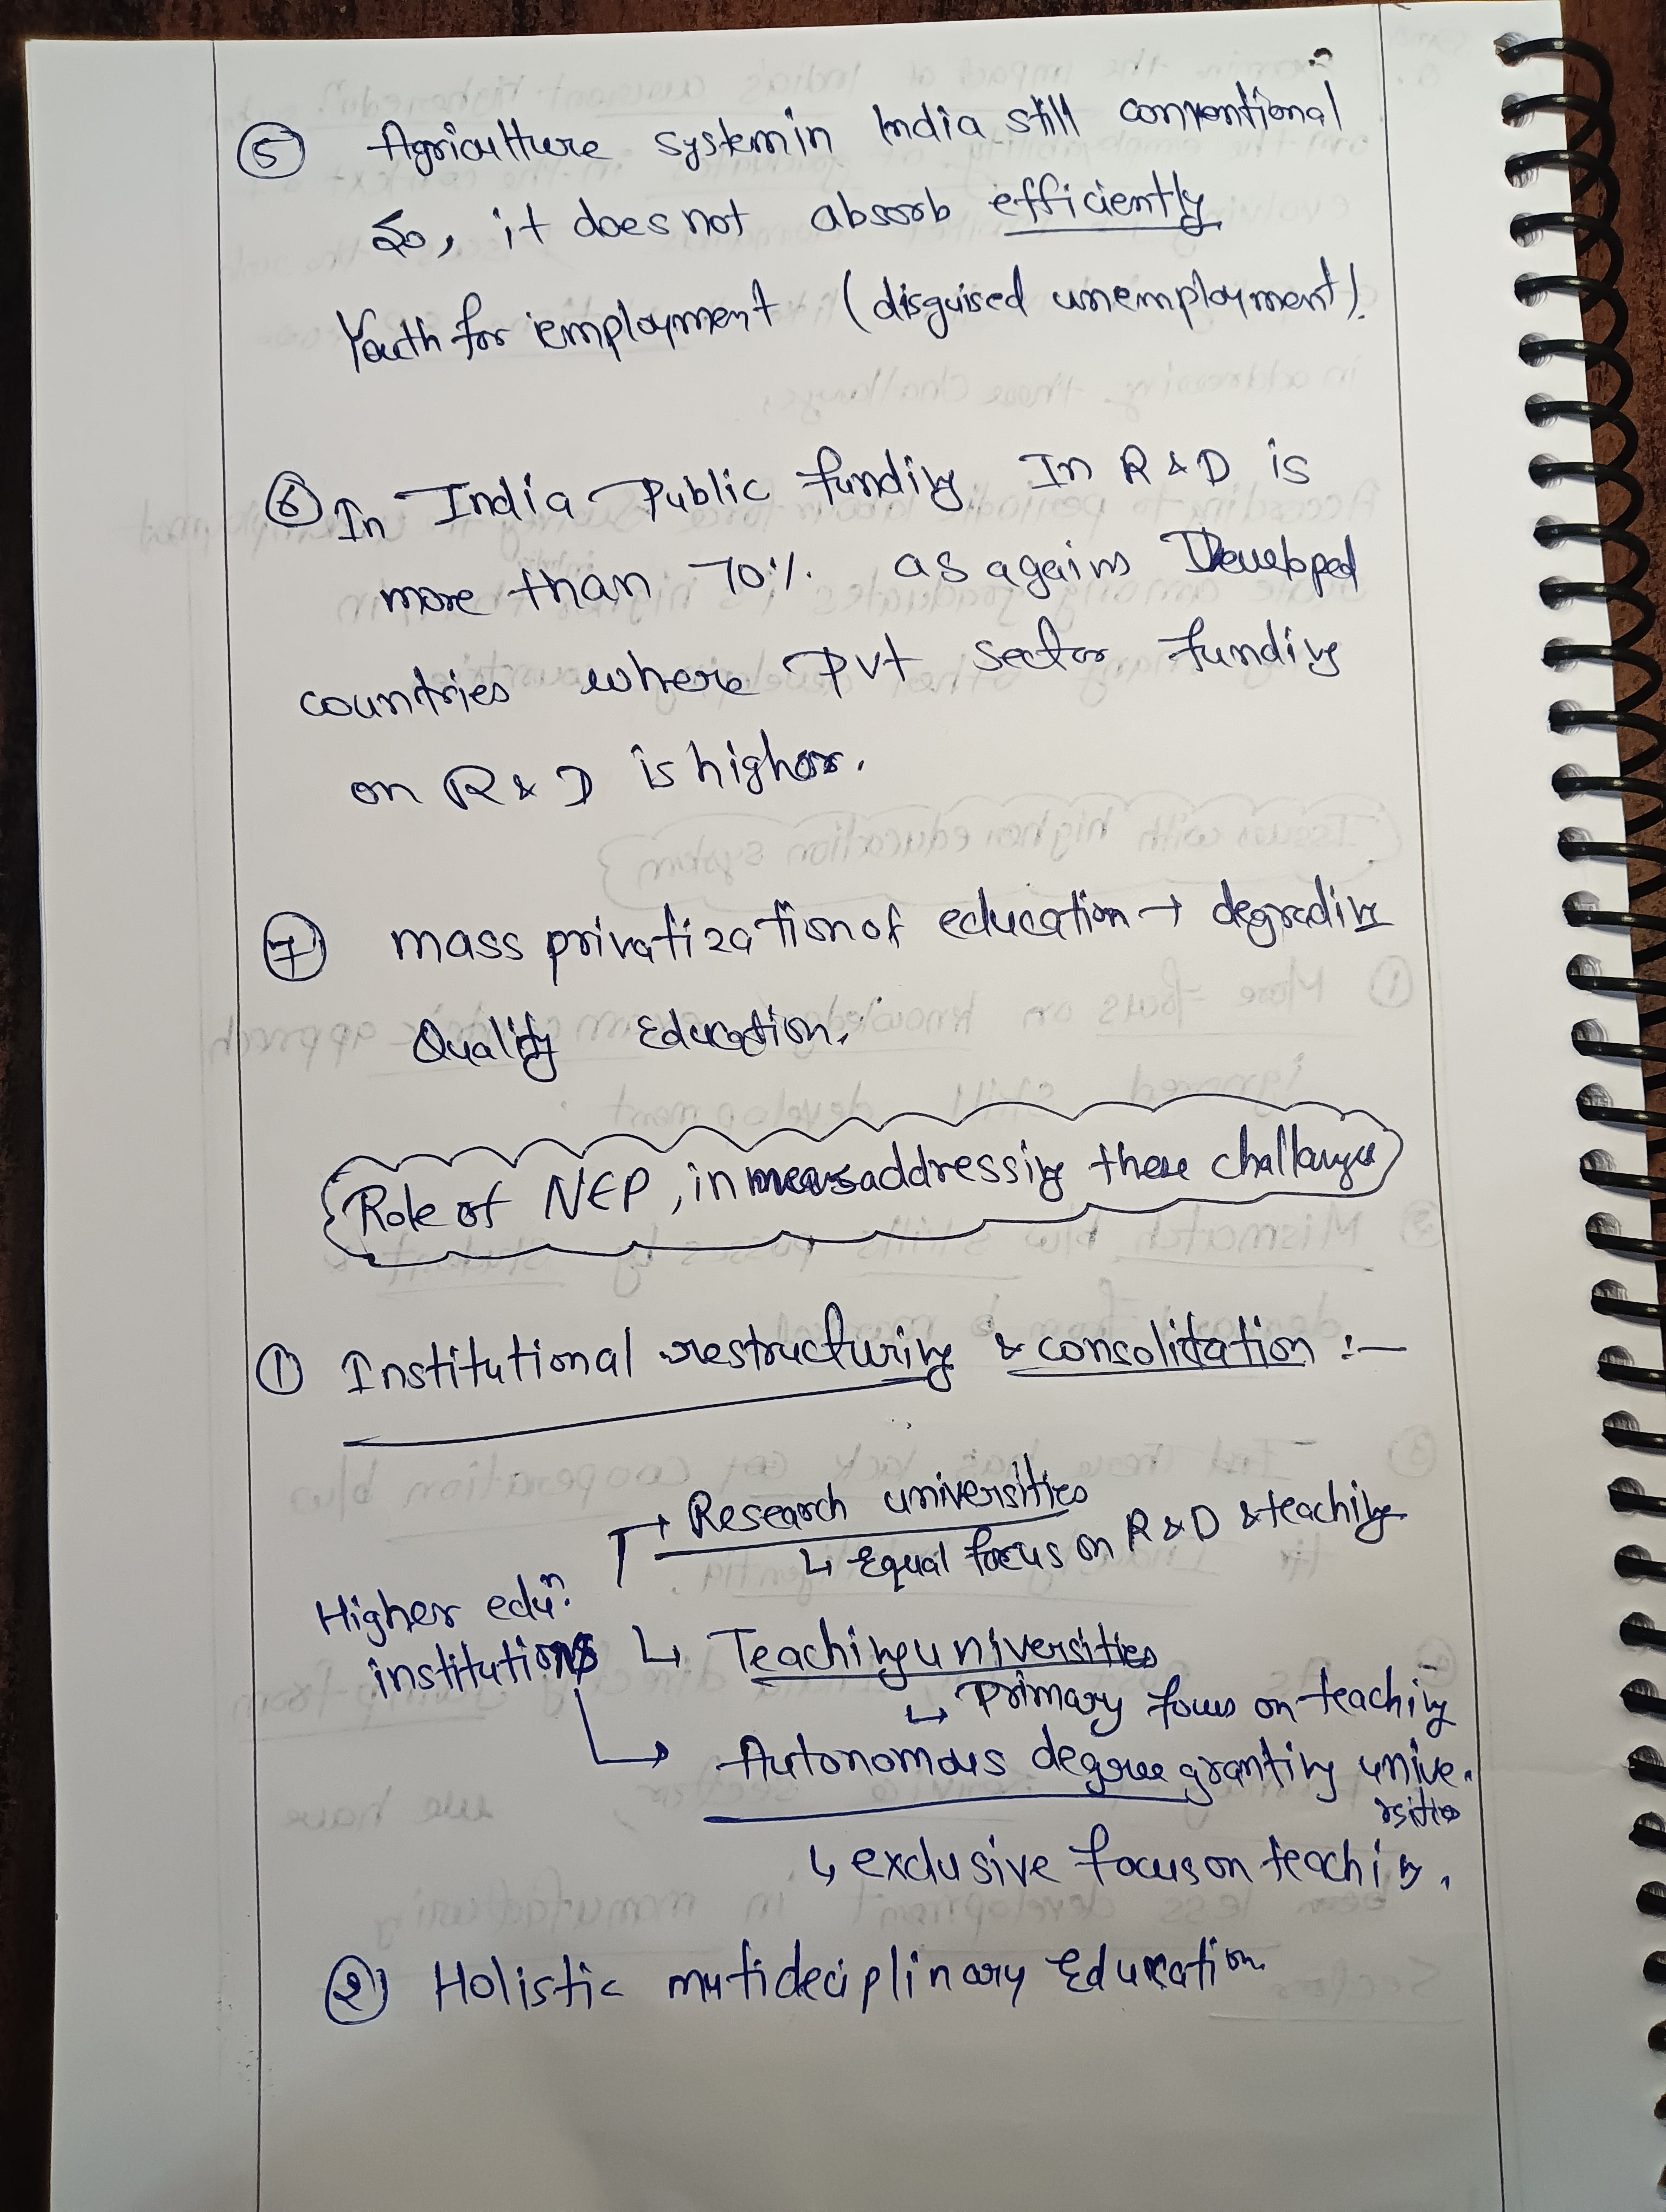 ⑤ Agriculture system in India still conventional
So, it does not absorb efficiently
Youth for employment (disguised unemployment).
⑥ In India Public funding In R & D is
more than 70%. as agains Developed
countries where Pvt sector funding
on R & D is higher.
⑦ mass privatization of education → degrading
Quality Education.
Role of NEP, in addressing these challanges
① Institutional restructuring & consolidation :—
→ Research universities
↳ Equal focus on R & D & teaching
Higher eduⁿ.
institutions ↳ Teaching universities
↳ Primary focus on teaching
→ Autonomous degree granting unive-
rsities
↳ exclusive focus on teaching.
② Holistic mutideciplinary Education